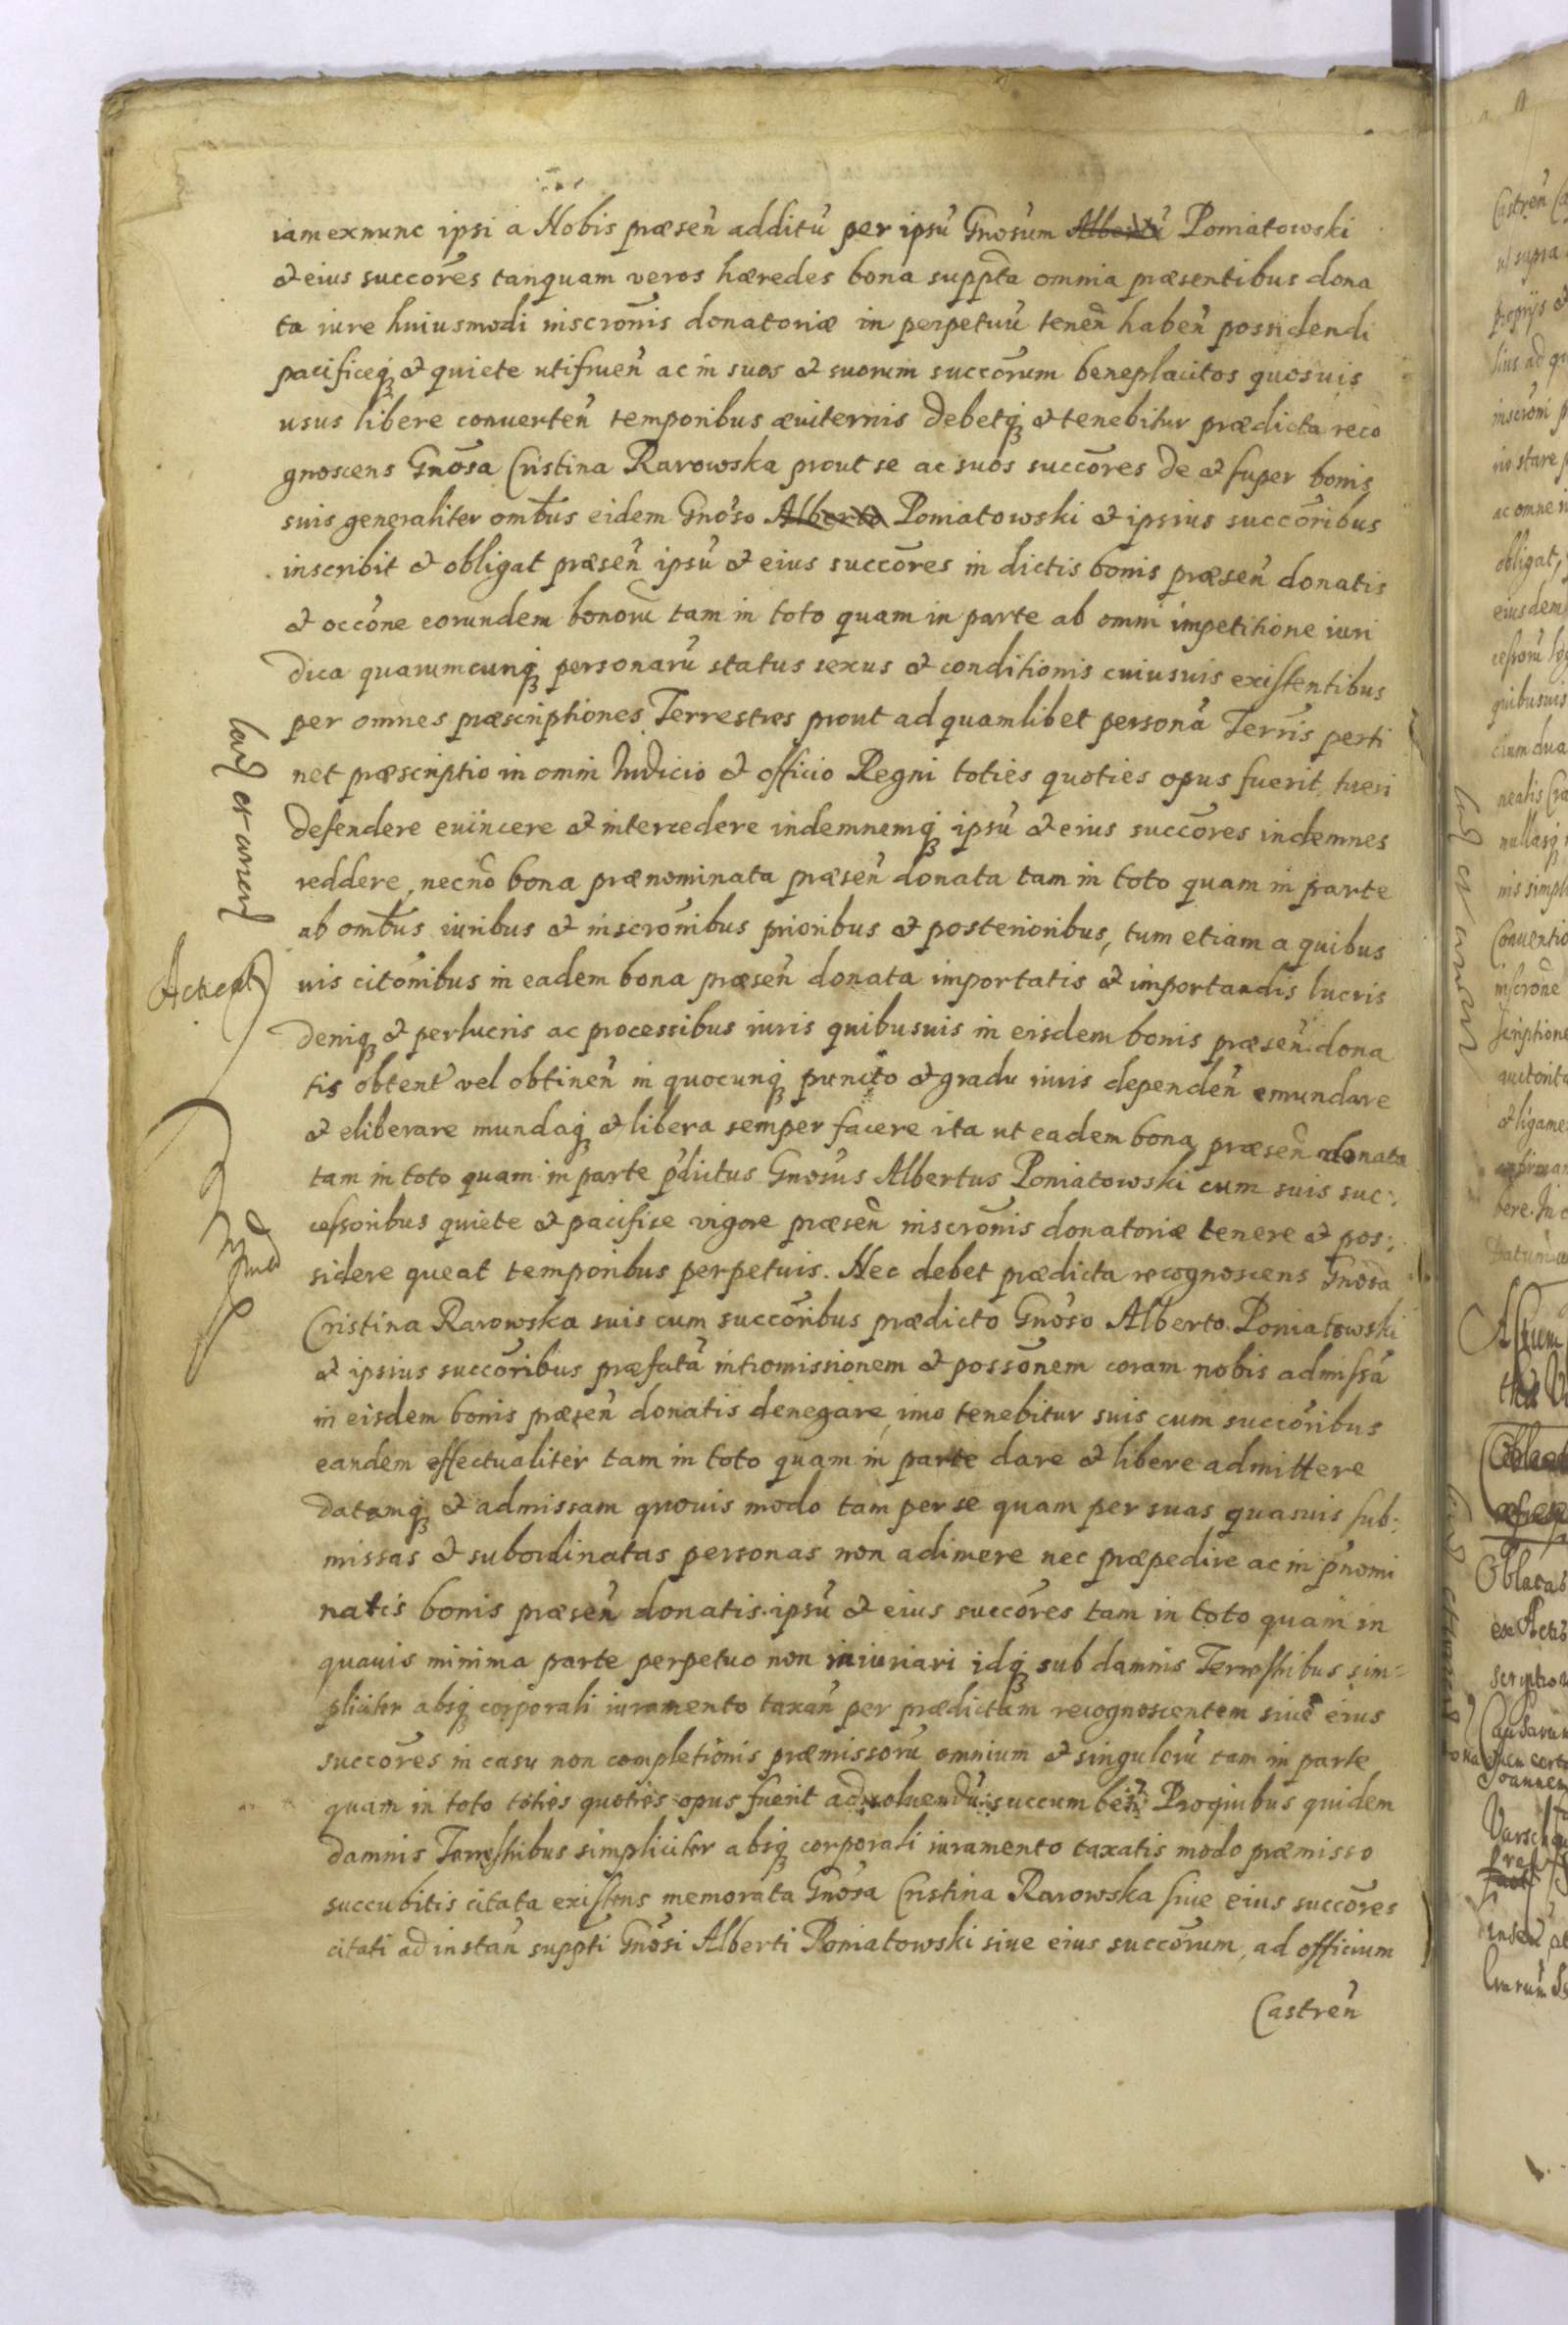 iam exnunc ipsi a Nobis præsen̄ additū per ipsū Gnosūm Albertū Poniatowski
& eius succores tanquam veros hæredes bona suppta omnia præsentibus dona
ta iure huiusmodi inscronis donatoriæ in perpetuū tenen̄ haben̄ possidendi
pacificeq̨ & quiete utifruen̄ ac in suos & suorum succorum beneplacitos quosuis
usus libere conuerten̄ temporibus æuiternis Debetq̨ & tenebitur prædicta reco
gnoscens Gnosa Cristina Rarowska prout se ac suos succores de & super bonis
suis generaliter ombus eidem Gnoso Alberto Poniatowski & ipsius succoribus
inscribit & obligat præsen̄ ipsū & eius succores in dictis bonis præsen̄ donatis
& occone eorundem bonorū tam in toto quam in parte ab omni impetitione iuri
dica quarumcunq̨ personarū status sexus & conditionis cuiusuis existentibus
per omnes præscriptiones Terrestres prout ad quamlibet personā Terris perti
net præscriptio in omni Iudicio & officio Regni toties quoties opus fuerit, tueri
defendere euincere & intercedere indemnemq̨ ipsū & eius succores indemnes
reddere, necno bona prænominata præsen̄ donata tam in toto quam in parte
ab ombus iuribus & inscronibus prioribus & posterioribus, tum etiam a quibus
uis citonibus in eadem bona præsen̄ donata importatis & importandis lucris
deniq̨ & perlucris ac processibus iuris quibusuis in eisdem bonis præsen̄ dona
tis obtent vel obtinen̄ in quocunq̨ puncto & gradu iuris dependen̄ emundare
& eliberare mundaq̨ & libera semper facere ita ut eadem bona præsen̄ donata
tam in toto quam in parte pdictus Gnosus Albertus Poniatowski cum suis suc:
cessoribus quiete & pacifice vigore præsen̄ inscronis donatoriæ tenere & pos:
sidere queat temporibus perpetuis. Nec debet prædicta recognoscens Gnosa
Cristina Rarowska suis cum succoribus prædicto Gnoso Alberto Poniatowski
& ipsius succoribus præfatā intromissionem & possonem coram nobis admissā
in eisdem bonis præsen̄ donatis denegare, imo tenebitur suis cum succoribus
eandem effectualiter tam in toto quam in parte dare & libere admittere
datamq̨ & admissam quouis modo tam per se quam per suas quasuis sub:
missas & subordinatas personas non adimere nec præpedire ac in pnomi
natis bonis præsen̄ donatis ipsū & eius succores tam in toto quam in
quauis minima parte perpetuo non iniuriari idq̨ sub damnis Terrestribus sim=
pliciter absq̨ corporali iuramento taxan̄ per prædictam recognoscentem siue eius
succores in casu non completionis præmissorū omnium & singulorū tam in parte
quam in toto toties quoties opus fuerit ad soluendū succumben̄ Pro quibus quidem
damnis Terrestribus simpliciter absq̨ corporali iuramento taxatis modo præmisso
succubitis citata existens memorata Gnosa Cristina Rarowska siue eius succores
citati ad instan̄ suppti Gnosi Alberti Poniatowski siue eius succorum, ad officium
Castren̄